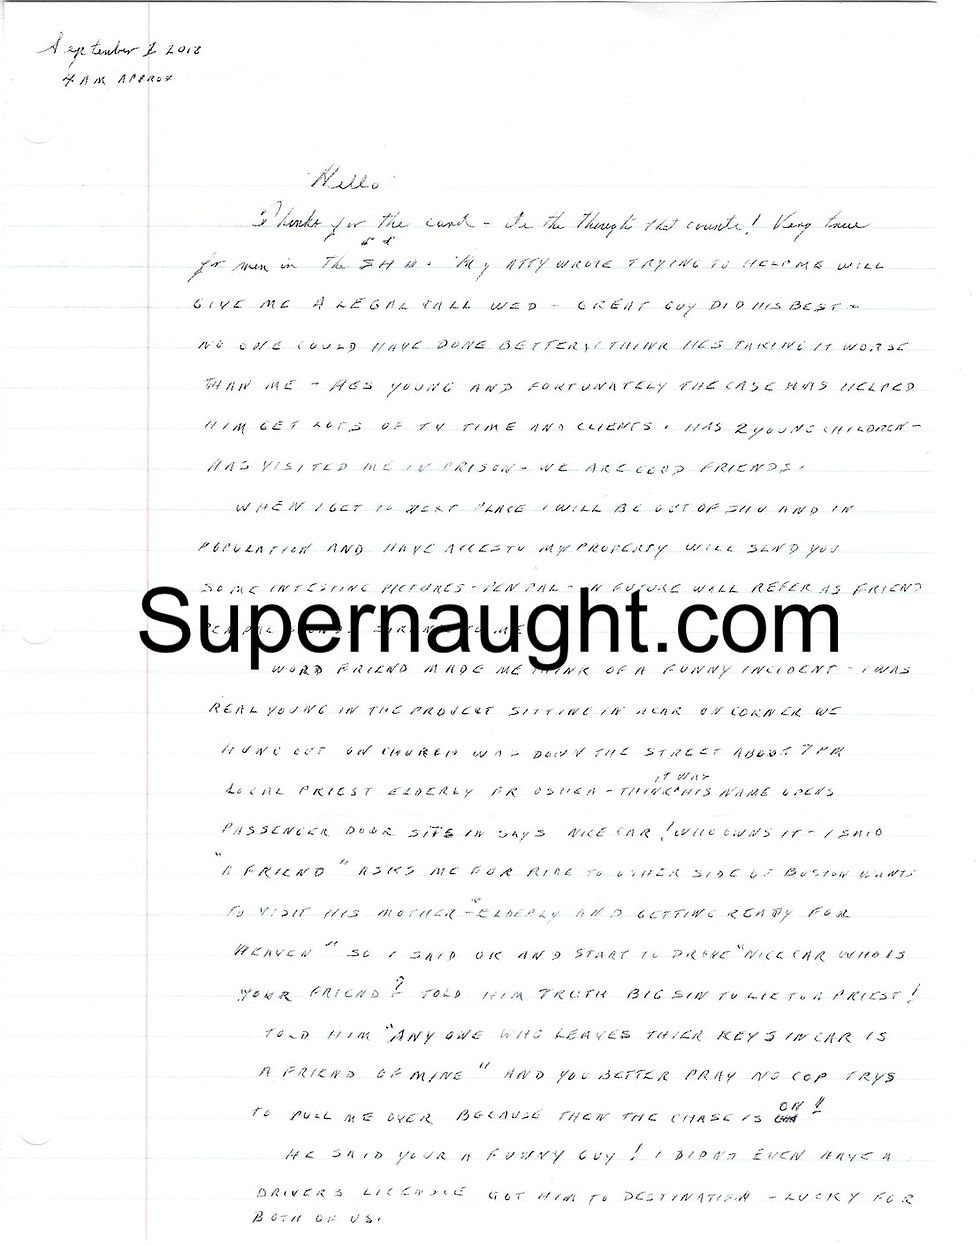 September 1 2018
4 AM APPROX
Hello
Thanks for the card - Its the thought that counts! Very true
for men in the SHU. My ATTY WROTE TRYING TO HELP ME WILL
GIVE ME A LEGAL CALL WED - GREAT GUY DID HIS BEST -
NO ONE COULD HAVE DONE BETTER, I THINK HES TAKING IT WORSE
THAN ME - HES YOUNG AND FORTUNATELY THE CASE HAS HELPED
HIM GET LOTS OF TV TIME AND CLIENTS. HAS 2 YOUNG CHILDREN -
HAS VISITED ME IN PRISON - WE ARE GOOD FRIENDS.
WHEN I GET TO NEXT PLACE I WILL BE OUT OF SHU AND IN
POPULATION AND HAVE ACCES TO MY PROPERTY WILL SEND YOU
SOME INTESTING PICTURES - PEN PAL - IN FUTURE WILL REFER AS FRIEND
Supernaught.com
PEN PAL TO ME
WORD FRIEND MADE ME THINK OF A FUNNY INCIDENT - I WAS
REAL YOUNG IN THE PROJECT SITTING IN A CAR ON CORNER WE
HUNG OUT ON CHURCH WAS DOWN THE STREET ABOUT 7 PM
LOCAL PRIEST ELDERLY FR OSHEA - THINK IT WAS HIS NAME OPENS
PASSENGER DOOR SITS IN SAYS NICE CAR! WHO OWNS IT - I SAID
"A FRIEND" ASKS ME FOR RIDE TO OTHER SIDE OF BOSTON WANTS
TO VISIT HIS MOTHER - "ELDERLY AND GETTING READY FOR
HEAVEN" SO I SAID OK AND START TO DRIVE "NICE CAR WHO IS
YOUR FRIEND? TOLD HIM TRUTH BIG SIN TO LIE TO A PRIEST!
TOLD HIM "ANY ONE WHO LEAVES THIER KEYS IN CAR IS
A FRIEND OF MINE" AND YOU BETTER PRAY NO COP TRYS
TO PULL ME OVER BECAUSE THEN THE CHASE IS ON!!
HE SAID YOUR A FUNNY GUY! I DIDNT EVEN HAVE A
DRIVERS LICENSE GOT HIM TO DESTINATION - LUCKY FOR
BOTH OF US.